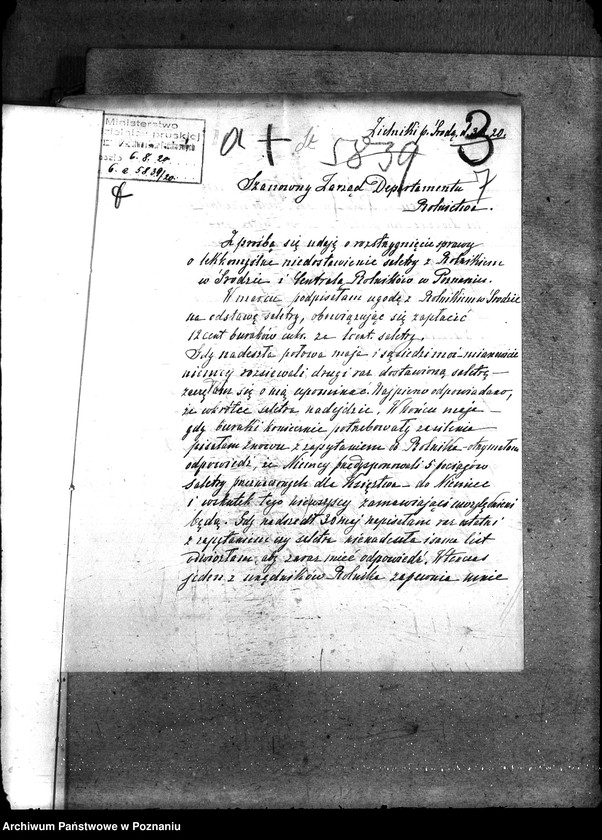 Ministerstwo
6.8.20
6.a 5839/20
a + 5839
3
7
Zielniki p. Środą, d. 20.
Szanowny Zarząd Departamentu
Rolnictwa.
Z prośbą się udaję o rozstrzygnięcie sprawy
o lekkomyślne niedostawienie saletry z Rolnikiem
w Środzie i Centralą Rolników w Poznaniu.
W marcu podpisałam ugodę z Rolnikiem w Środzie
na odstawę saletry, obowiązując się zapłacić
12 cent. buraków cukr. za 1 cent. saletry.
Gdy nadeszła połowa maja i sąsiedzi moi mianowicie
niemcy rozsiewali drugi raz dostawioną saletrę –
zaczęłam się o nią upominać. Najpierw odpowiadano,
że wkrótce saletra nadejdzie. W końcu maja –
gdy buraki koniecznie potrzebowały zasilenia
pisałam znowu z zapytaniem do Rolnika – otrzymałam
odpowiedź, że Niemcy 5 pociągów
saletry przeznaczonych dla Księstwa – do Niemiec
i wskutek tego wszyscy zamawiający
będą. Gdy nadszedł 30 maj napisałam raz
z zapytaniem czy saletra nienadeszła i sama list
odwiozłam, aby zaraz mieć odpowiedź. Wtenczas
jeden z urzędników Rolnika zapewnia mnie
Archiwum Państwowe w Poznaniu